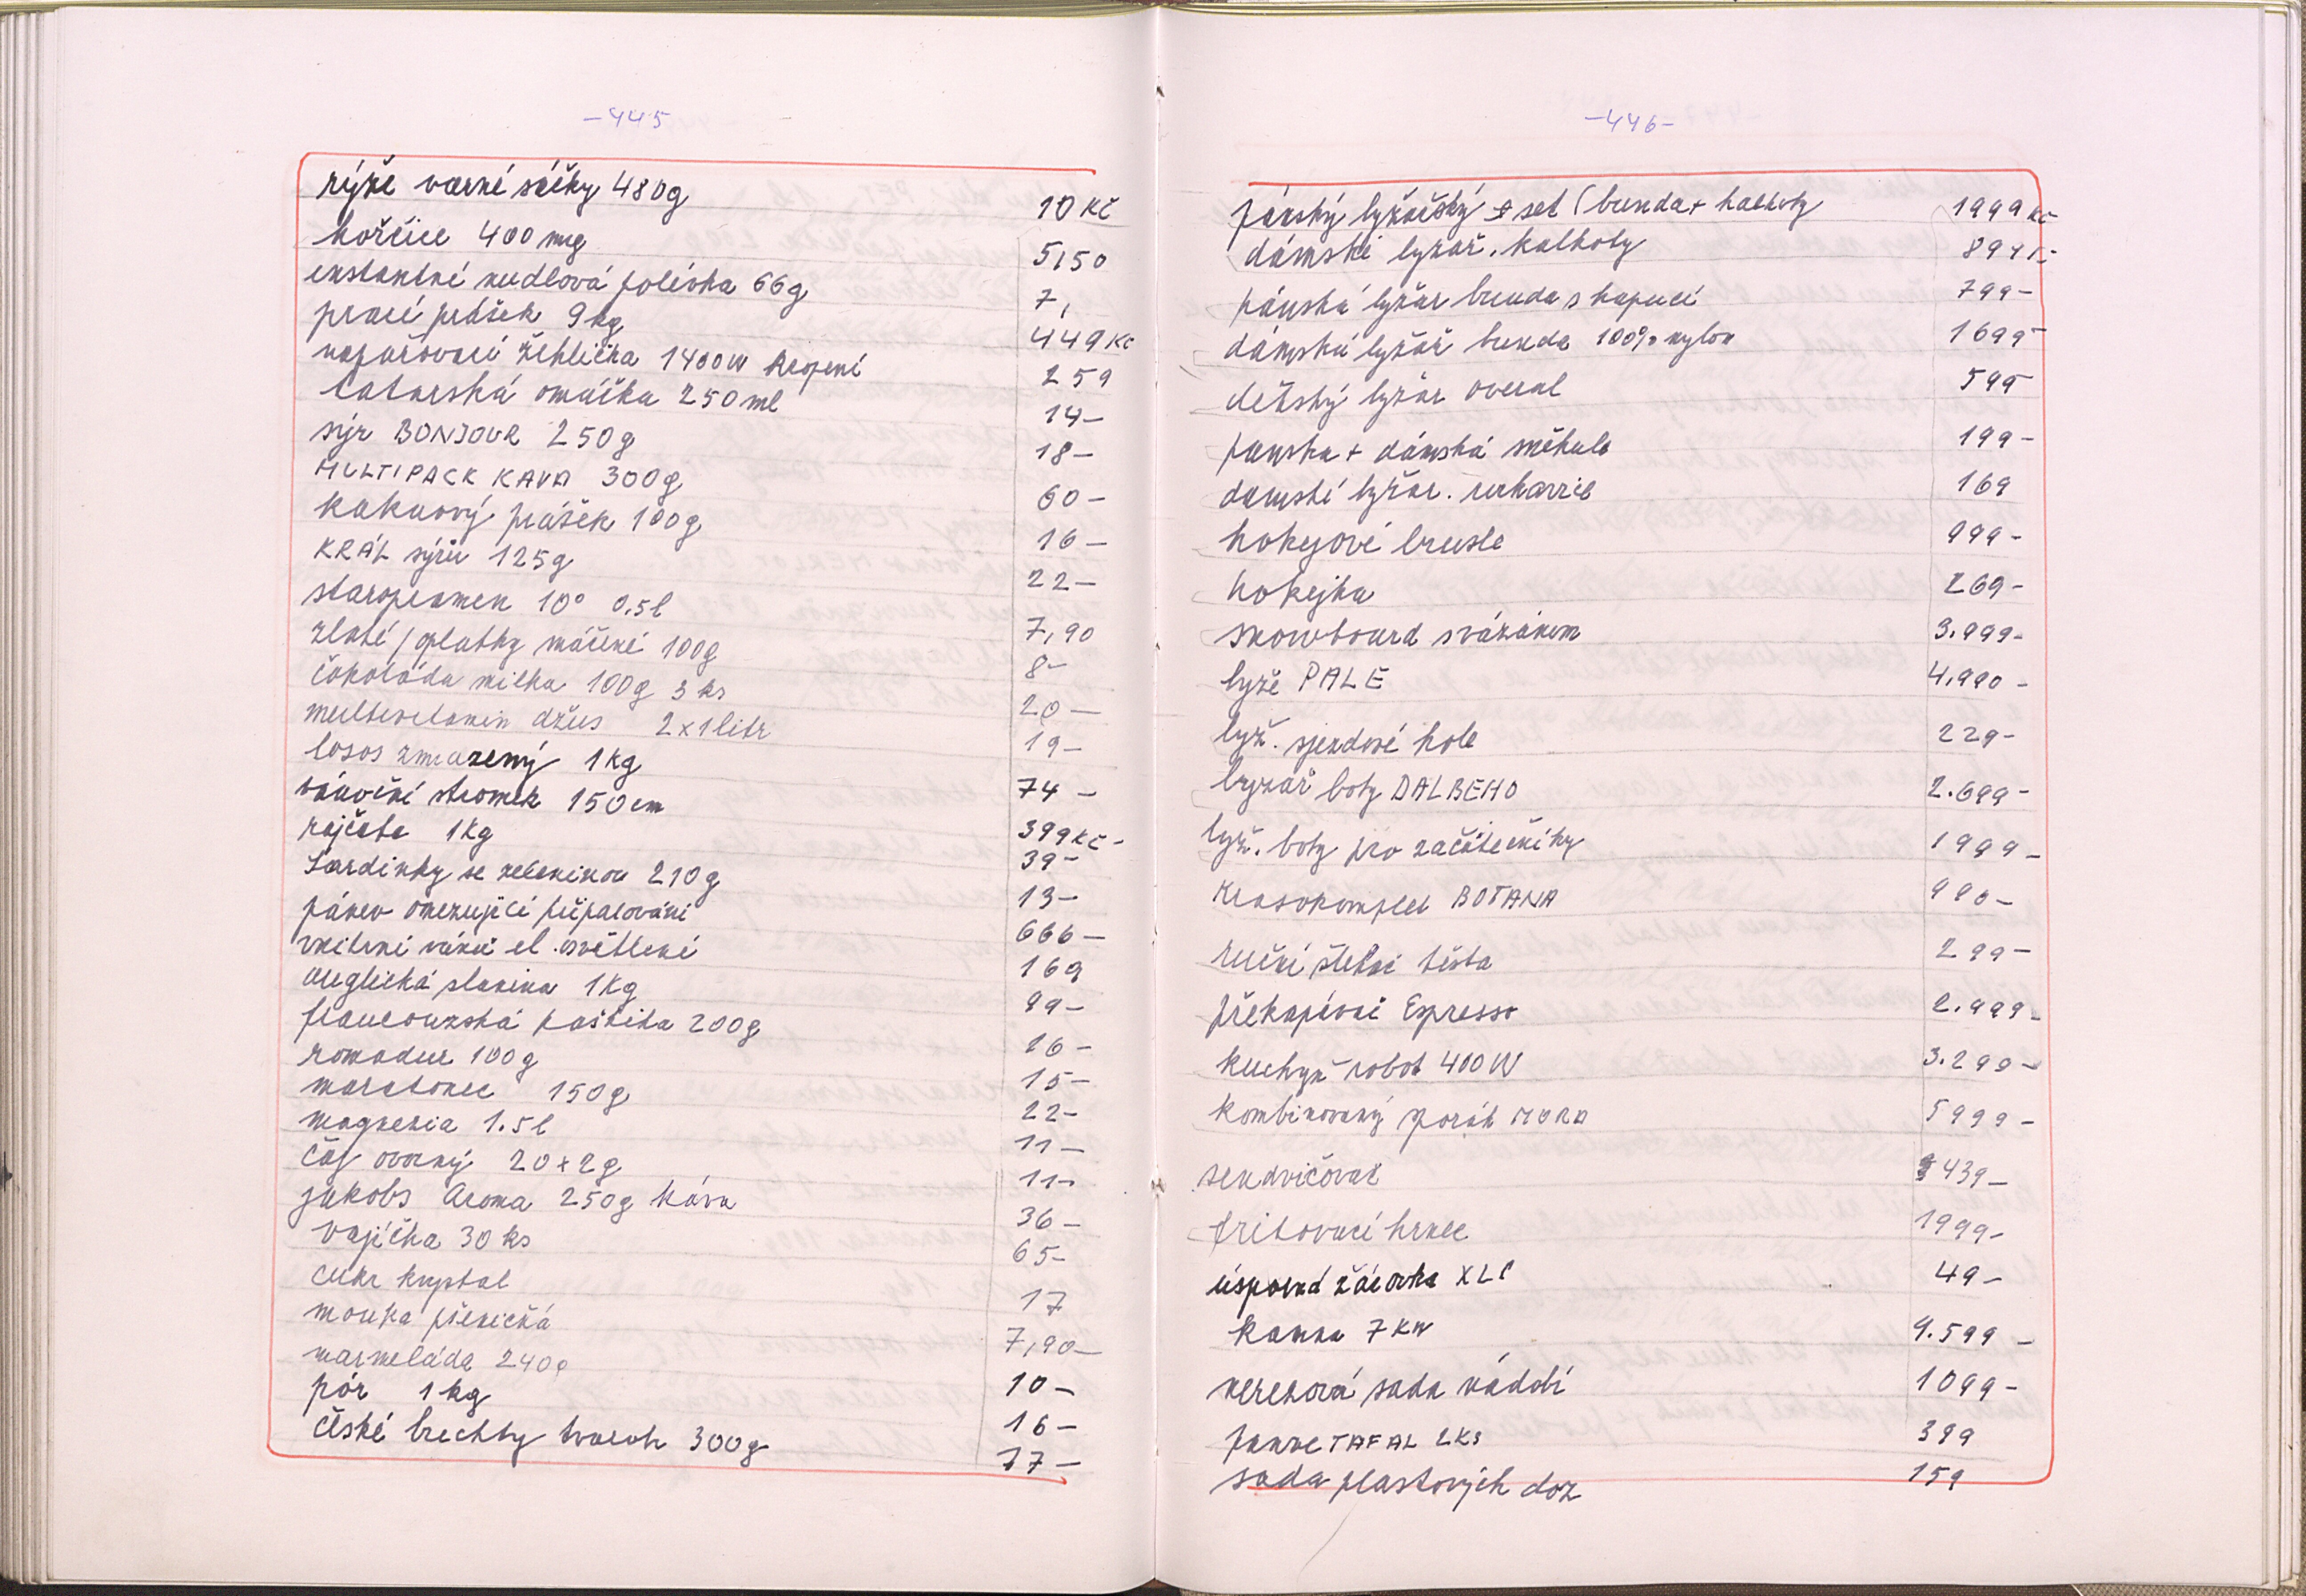 -445
rýže varné sáčky 480g 10 Kč
hořčice 400 mg 5,50
instantní nudlová polévka 66g 7,
prací prášek 9kg 449 Kc
napařovací žehlička 1400W kropení 259
tatarská omáčka 250 ml 14-
sýr BONJOUR 250g 18-
MULTIPACK KAVA 300g 60-
kakaový prášek 100g 16-
KRÁL sýrů 125g 22-
staropramen 10° 0.5l 7,90
zlaté oplatky máčené 100g 8-
čokoláda milka 100g 3 ks 20-
multivitamin džus 2x1litr 19-
losos zmrazený 1kg 74-
vánoční stromek 150cm 399 Kč-
rajčata 1kg 39-
Sardinky se zeleninou 210g 13-
pánev omezující připalování 666-
vnitřní ván. el. osvětlení 169
anglická slanina 1kg 99-
francouzská paštika 200g 16-
romadur 100g 15-
maratonec 150g 22-
magnezia 1.5l 11-
čaj ovocný 20x2g 11-
jakobs Aroma 250g káva 36-
vajíčka 30 ks 65-
cukr krystal 17
mouka pšeničná 7,90-
marmeláda 240g 10-
pór 1kg 16-
české buchty tvaroh 300g 17-
-446-
pánský lyžařský set (bunda + kalhoty 1999 Kč
dámské lyžař. kalhoty 899,-
pánská lyžar bunda s kapucí 799-
dámská lyžař bunda 100% nylon 1699-
dětský lyžar overal 599
panska + dámská sněhule 199-
damské lyžar. rukavice 169
hokejové brusle 999-
hokejka 269-
snowboard s vázáním 3.999-
lyže PALE 4.990-
lyž. sjezdové hole 229-
lyzař boty DALBEHO 2.699-
lyž. boty pro začátečníky 1999-
BOTANA 990-
ruční šlehač těsta 299-
překapávač Espresso 2.999-
kuchyň robot 400W 3.299-
kombinovaný porák MORA 5999-
sendvičovač 439-
fritovací hrnec 1999-
úsporná žárovka XLC 49-
kamna 7 KW 9.599-
nerezová sada nádobí 1099-
panve TAFAL 2ks 399
sada plastových doz 159